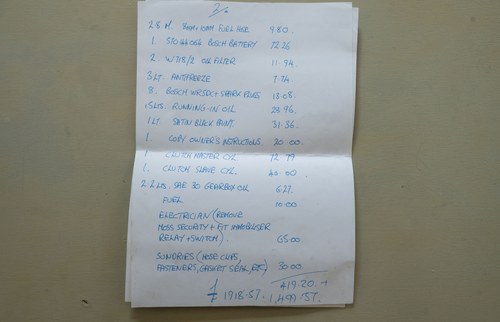 2/.
2.8 M. 8mm I.D AM FUEL HOSE 9.80
1. BOSCH BATTERY 72.26
2 W718/2 OIL FILTER 11.94
3 LT. ANTIFREEZE 7.74
8. BOSCH WR5DC+ SPARK PLUGS 13.08
15LTS. RUNNING-IN OIL 28.96
1 LT. SATIN BLACK PAINT. 31.36
1. COPY OWNER'S INSTRUCTIONS. 20.00
1. CLUTCH MASTER CYL 72.79
1. CLUTCH SLAVE CYL. 40.00
2.2 Lts. SAE 30 GEARBOX OIL 6.27
FUEL 10.00
ELECTRICIAN (REMOVE
MOSS SECURITY + FIT IMMOBILISER
RELAY + SWITCH). 65.00
SUNDRIES (HOSE CLIPS,
FASTENERS, GASKET SEAL, ETC) 30.00
419.20. +
£ 1918.57. 1,499.37.